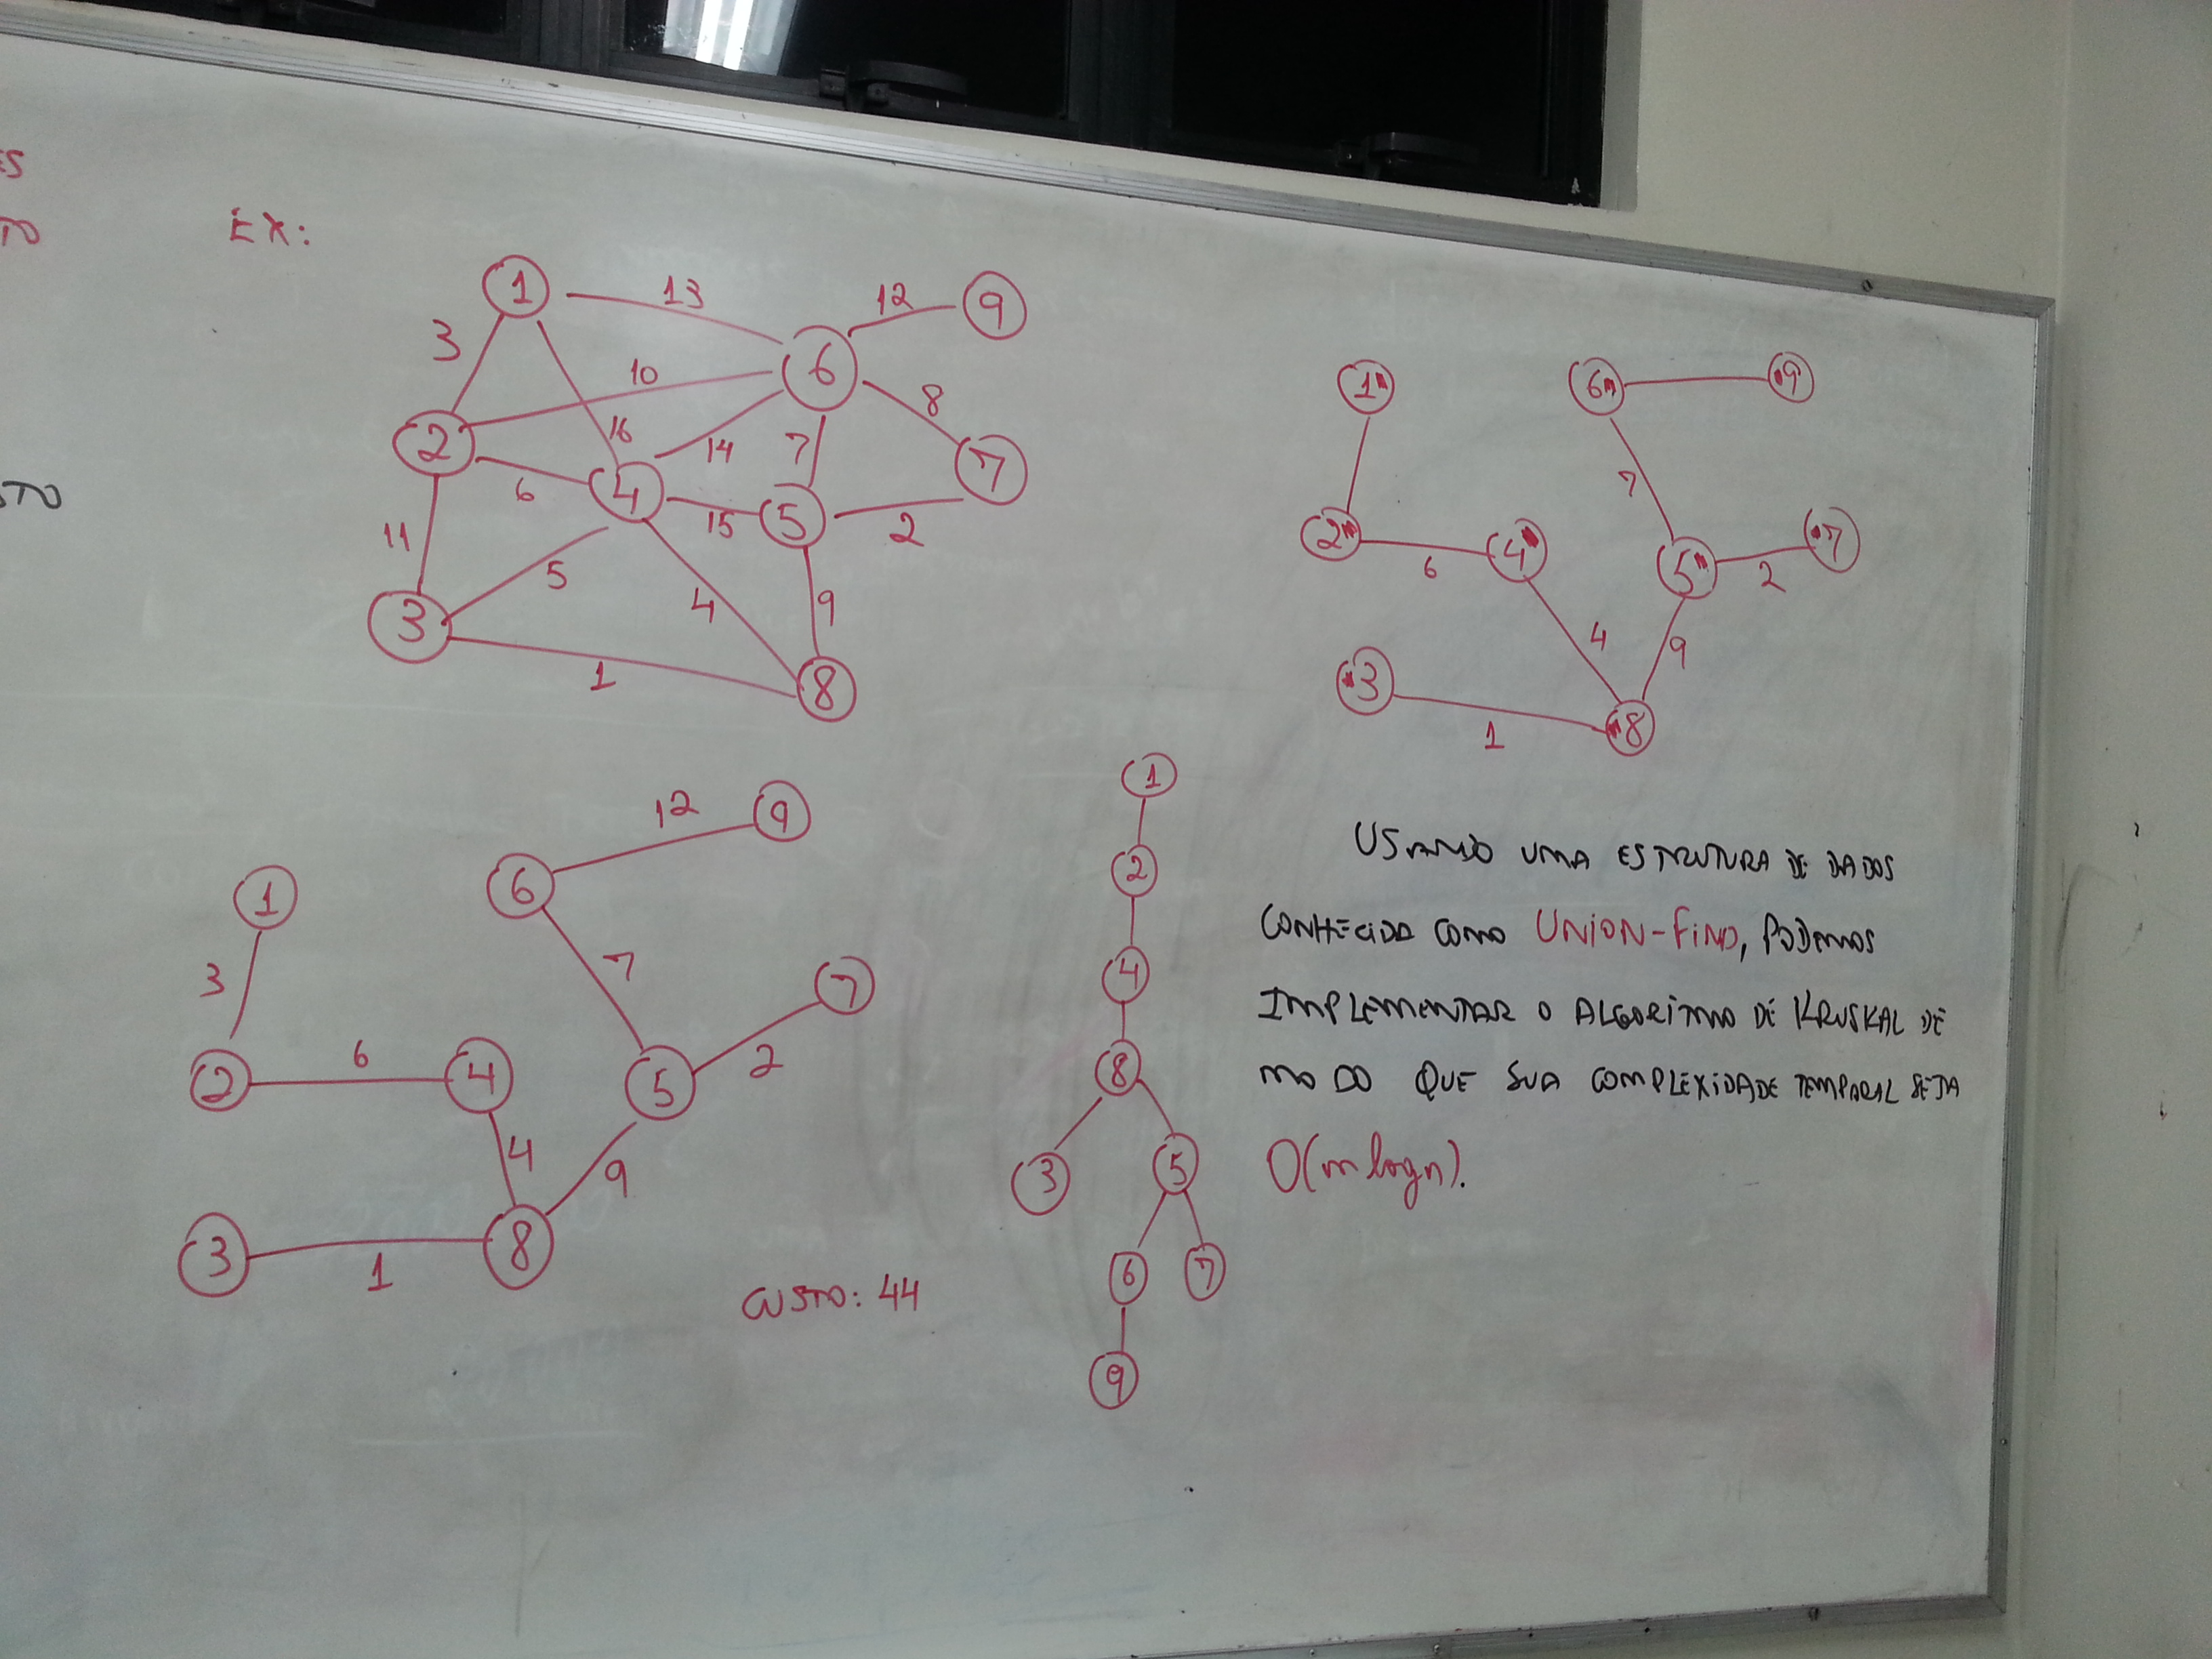 ES
TO
STO
EX:
1
13
12
9
3
6
10
8
2
16
14
7
7
6
4
15
5
2
11
5
4
9
3
1
8
1
6
9
7
2
4
5
7
6
2
4
9
3
1
8
12
9
1
6
3
7
7
6
4
2
5
2
4
9
3
1
8
CUSTO: 44
1
2
4
8
3
5
6
7
9
USANDO UMA ESTRUTURA DE DADOS
CONHECIDA COMO UNION-FIND, PODEMOS
IMPLEMENTAR O ALGORITMO DE KRUSKAL DE
MODO QUE SUA COMPLEXIDADE TEMPORAL SEJA
O(m log n).